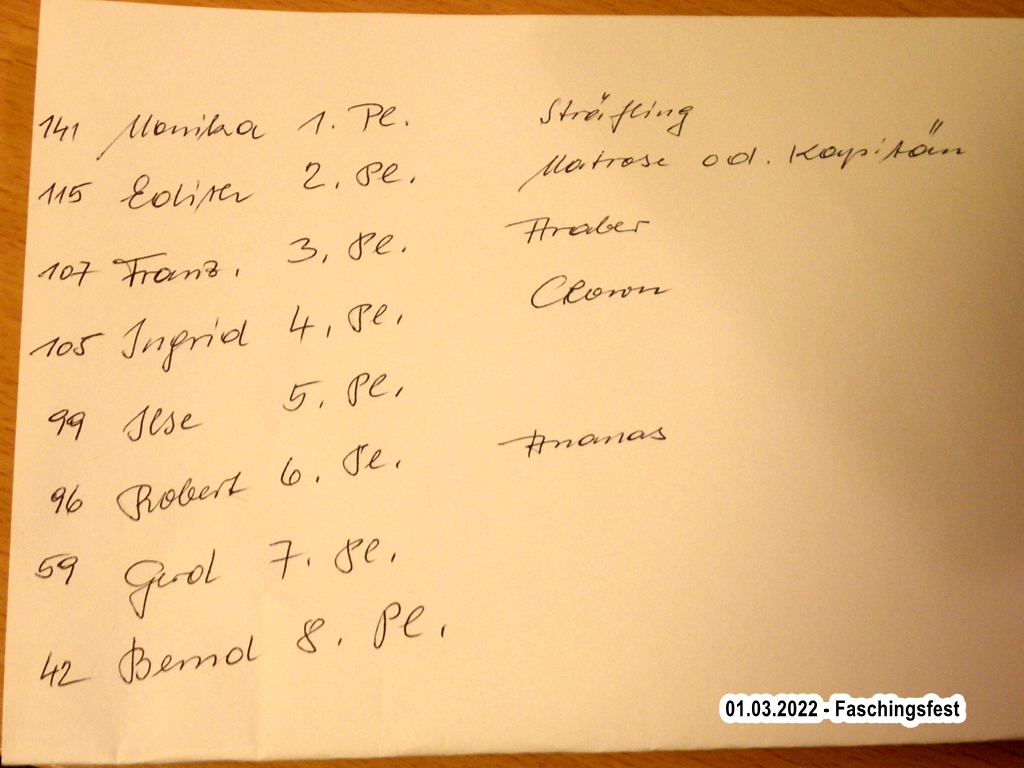 141 Monika 1. Pl. Sträfling
115 Edith 2. Pl. Matrose od. Kapitän
107 Franz. 3. Pl. Araber
105 Ingrid 4. Pl. Clown
99 Ilse 5. Pl.
96 Robert 6. Pl. Ananas
59 Gerd 7. Pl.
42 Bernd 8. Pl.
01.03.2022 - Faschingsfest